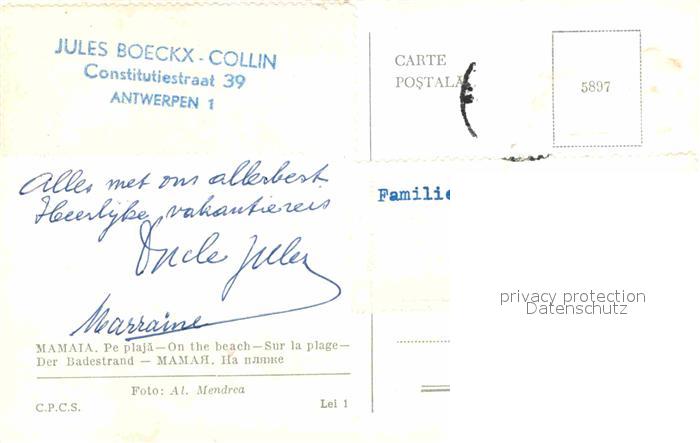 JULES BOECKX - COLLIN
Constitutiestraat 39
ANTWERPEN 1
CARTE
POȘTALĂ
5897
Alles met ons allerbest.
Heerlijke vakantiereis
Oncle Jules
Marraine
Familie
privacy protection
Datenschutz
MAMAIA. Pe plajă—On the beach—Sur la plage—
Der Badestrand — МАМАЯ. На пляже
Foto: Al. Mendrea
C.P.C.S. Lei 1